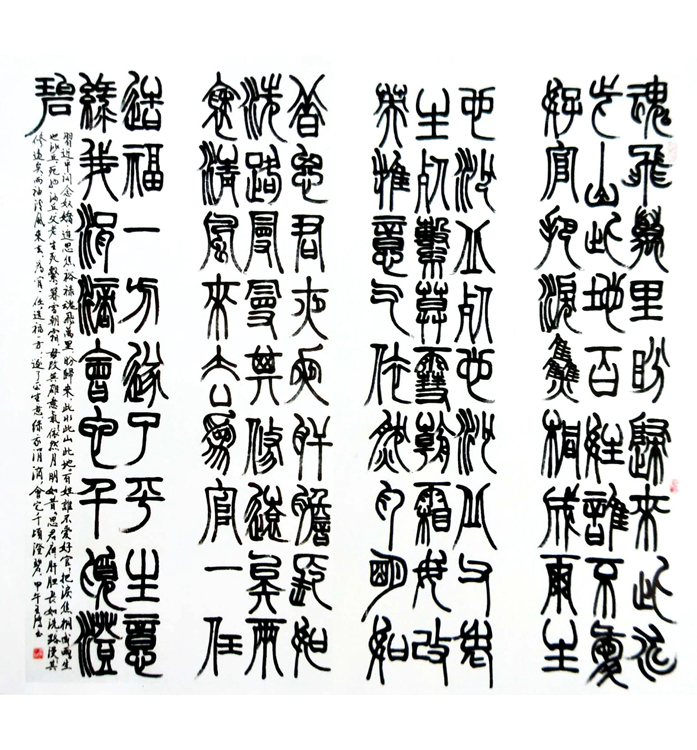 魂飛萬里盼歸來此水
此山此地百姓誰不愛
好官把淚焦桐成雨生
也沙丘死也沙丘父老
生死繫暮雪朝霜毋改
英雄意氣依然月明如
昔思君夜夜肝膽長如
洗路漫漫其修遠矣兩
袖清風來去為官一任
造福一方遂了平生意
綠我涓滴會它千頃澄
碧
習近平念奴嬌追思焦裕祿魂飛萬里盼歸來此水此山此地百姓誰不愛好官把淚焦桐成雨生
也沙丘死也沙丘父老生死繫暮雪朝霜毋改英雄意氣依然月明如昔思君夜夜肝膽長如洗路漫漫其
修遠矣兩袖清風來去為官一任造福一方遂了平生意綠我涓滴會它千頃澄碧甲午